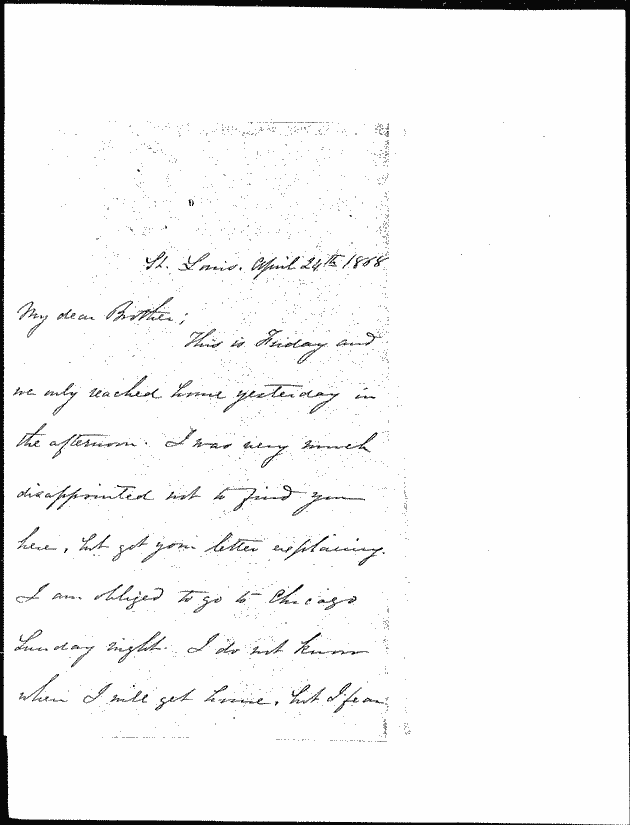 St. Louis. April 24th 1868
My dear Brother;
This is Friday and
we only reached home yesterday in
the afternoon. I was very much
disappointed not to find you
here, but got your letter explaining.
I am obliged to go to Chicago
Sunday night. I do not know
when I will get home, but I fear